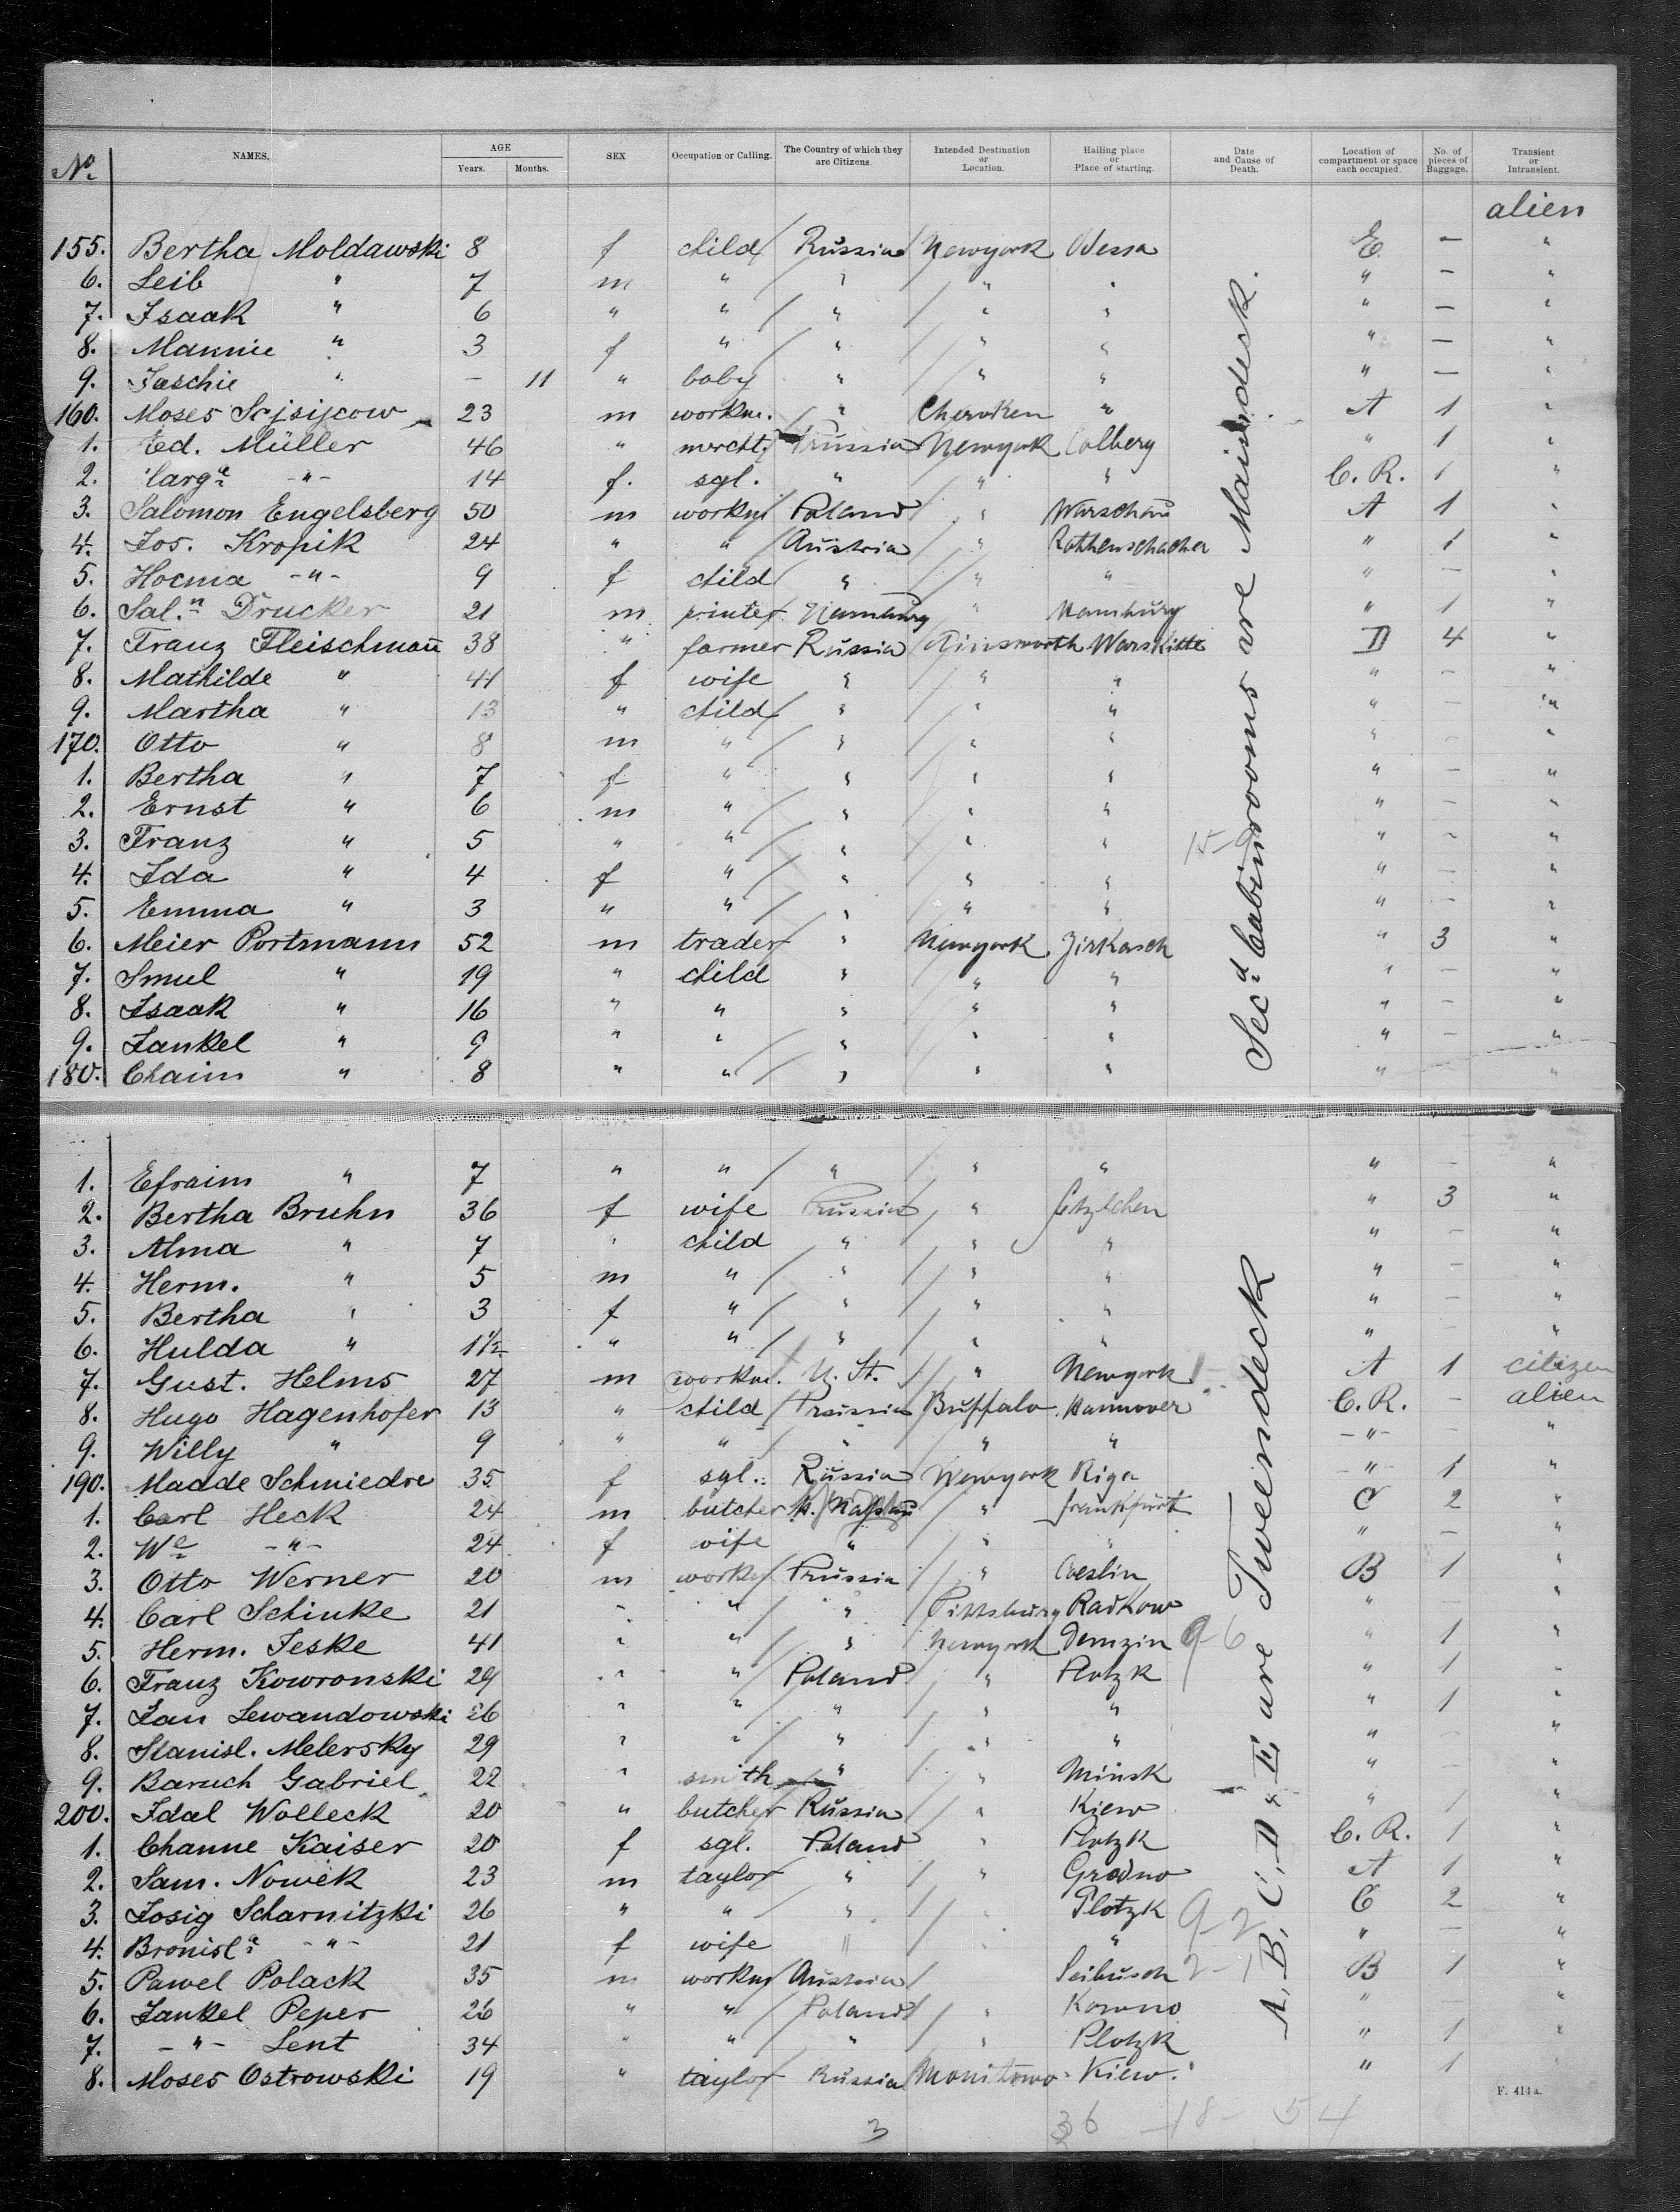 No. NAMES. AGE Years. Months. SEX Occupation or Calling. The Country of which they are Citizens. Intended Destination or Location. Hailing place or Place of starting. Date and Cause of Death. Location of compartment or space each occupied. No. of pieces of Baggage. Transient or Intransient.
alien
155. Bertha Moldawski 8 f child Russia Newyork Odessa E – "
6. Leib " 7 m " " " " " – "
7. Isaak " 6 " " " " " " – "
8. Mannie " 3 f " " " " " – "
9. Jaschie " – 11 " baby " " " " – "
160. Moses 23 m workm. " " A 1 "
1. Ed. Müller 46 " mercht. Prussia Newyork Colberg " 1 "
2. Marge. -"- 14 f. sgl. " " " C. R. 1 "
3. Salomon Engelsberg 50 m workm Poland " Warschau A 1 "
4. Jos. Kropik 24 " " Austria " Rothenschacher " 1 "
5. Hocma -"- 9 f child " " " " – "
6. Saln. Drucker 21 m printer Hamburg " Hamburg " 1 "
7. Franz Fleischmann 38 " farmer Russia Ainsworth D 4 "
8. Mathilde " 41 f wife " " " " – "
9. Martha " 13 " child " " " " – "
170. Otto " 8 m " " " " " – "
1. Bertha " 7 f " " " " " – "
2. Ernst " 6 m " " " " " – "
3. Franz " 5 " " " " " 15- " – "
4. Ida " 4 f " " " " " – "
5. Emma " 3 " " " " " " – "
6. Meier Portmann 52 m trader " Newyork Zirkasch " 3 "
7. Smul " 19 " child " " " " – "
8. Isaak " 16 " " " " " " – "
9. Jankel " 9 " " " " " " – "
180. Chaim " 8 " " " " " " "
Secd. Cabinrooms are Maindeck.
1. Efraim " 7 " " " " " " – "
2. Bertha Bruhn 36 f wife Prussia " " 3 "
3. Alma " 7 " child " " " " – "
4. Herm. " 5 m " " " " " – "
5. Bertha " 3 f " " " " " – "
6. Hulda " 1½ " " " " " " – "
7. Gust. Helms 27 m workm. U. St. " Newyork A 1 citizen
8. Hugo Hagenhofer 13 " child Prussia Buffalo Hannover C. R. – alien
9. Willy " 9 " " " " " -"- – "
190. Madde Schmiedre 35 f sgl. Russia Newyork Riga -"- 1 "
1. Carl Heck 24 m butcher H. Nassau " Frankfurt C 2 "
2. We. -"- 24 f wife " " " " – "
3. Otto Werner 20 m workm Prussia " Coeslin B 1 "
4. Carl Schinke 21 " " " Pittsburg Radkow " – "
5. Herm. Jeske 41 " " " Newyork Demzin 9-6 " 1 "
6. Franz Kowronski 29 " " Poland " Plotzk " 1 "
7. Jan Lewandowski 26 " " " " " " 1 "
8. Stanisl. Melersky 29 " " " " " " – "
9. Baruch Gabriel 22 " smith " " Minsk " – "
200. Idal Wolleck 20 " butcher Russia " Kiew " 1 "
1. Channe Kaiser 20 f sgl. Poland " Plotzk C. R. 1 "
2. Sam. Nowek 23 m taylor " " Grodno A 1 "
3. Josig Scharnitzki 26 " " " " Plotzk 9-2 C 2 "
4. Bronisle. -"- 21 f wife " " " " – "
5. Pawel Polack 35 m workm Austria Seibusch 2-1 B 1 "
6. Jankel Peper 26 " " Poland " Kowno " – "
7. -"- Lent 34 " " " " Plotzk " 1 "
8. Moses Ostrowski 19 " taylor Russia Manitowo Kiew. " 1 "
A, B, C, D & E are Tweendeck
F. 414a.
3 36 -18- 54